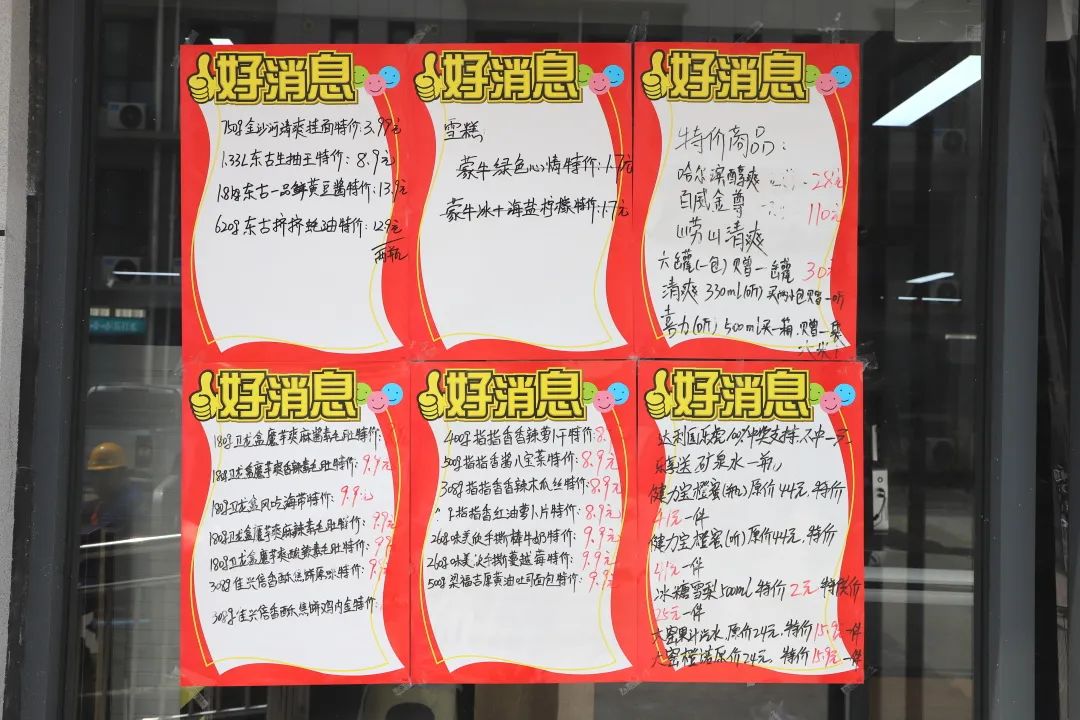 好消息
750g金沙河清爽挂面特价:3.99元
1.33L东古生抽王特价:8.9元
东古一品鲜黄豆酱特价:13.9元
620g东古挤挤蚝油特价:12.9元
两瓶
好消息
雪糕
蒙牛绿色心情特价:1.7元
蒙牛冰+海盐柠檬特价:1.7元
好消息
特价商品:
哈尔滨醇爽 28元
百威金尊 110元
崂山清爽
六罐(一包)赠一罐 30元
清爽330ml(听)买两小包赠一听
喜力(听)500ml买一箱赠一袋
好消息
180g卫龙盒魔芋爽麻酱素毛肚特价:
卫龙盒魔芋爽香辣素毛肚特价:9.9元
180g卫龙盒风吃海带特价:9.9元
180g卫龙盒魔芋爽麻辣素毛肚特价:9.9
180g卫龙盒魔芋爽酸辣素毛肚特价:9.9
308g佳兴倍香酥焦饼原味特价:9.9
308g佳兴倍香酥焦饼鸡内金特价:
好消息
400g指指香香辣萝卜干特价:8.
500g指指香酱八宝菜特价:8.9元
308g指指香香辣木瓜丝特价:8.9元
指指香红油萝卜片特价:8.9元
268g味美滋手撕棒牛奶特价:9.9元
268g味美滋手撕蔓越莓特价:9.9元
500g梁福吉厚黄油吐司面包特价:9.9
好消息
达利园乐虎100%中奖支持.不中一元
乐享送矿泉水一瓶
健力宝橙蜜(瓶)原价44元,特价
41元一件
健力宝橙蜜(听)原价44元,特价
41元一件
冰糖雪梨500ml特价2元 特价
25元一件
大窑果汁汽水,原价24元,特价15.9元一件
大窑橙诺原价24元,特价15.9元一件